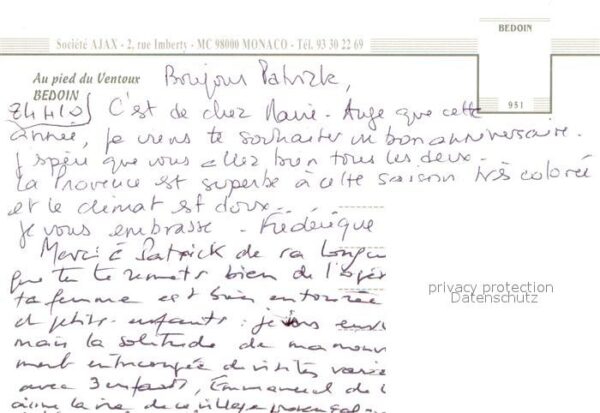 BEDOIN
Société AJAX - 2, rue Imberty - MC 98000 MONACO - Tél. 93 30 22 69
Au pied du Ventoux
BEDOIN
951
Bonjour Patrick,
C'est de chez Marie-Ange que cette
année, je viens te souhaiter un bon anniversaire.
J'espère que vous allez bien tous les deux.
La Provence est superbe à cette saison très colorée
et le climat est doux...
Je vous embrasse - Frédérique
Merci à Patrick de sa longu
que tu te remets bien de l'opér
ta femme est bien entourée
et petits-enfants : je
mais la solitude de ma nouv
ment entrecoupée de visites varié
avec 3 enfants, Emmanuel de
privacy protection
Datenschutz